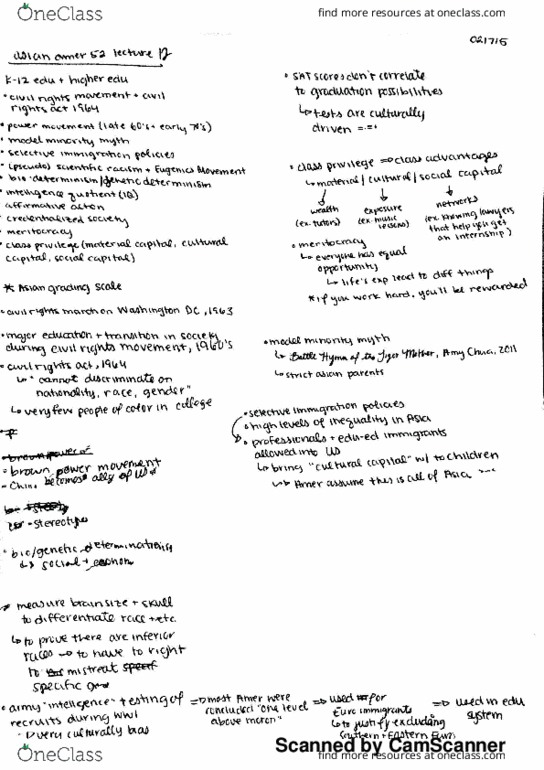 OneClass
find more resources at oneclass.com
021715
asian amer 52 lecture 12
K-12 edu + higher edu
• civil rights movement + civil
rights act 1964
• power movement (late 60's + early 70's)
• model minority myth
• selective immigration policies
• (pseudo) scientific racism + Eugenics Movement
• bio determinism/genetic determinism
• intelligence quotient (IQ)
• affirmative action
• credentialized society
• meritocracy
• class privilege (material capital, cultural
capital, social capital)
* Asian grading scale
• civil rights march on Washington DC, 1963
• major education + transition in society
during civil rights movement, 1960's
• civil rights act, 1964
↳ "cannot discriminate on
nationality, race, gender"
↳ very few people of color in college
• brown power movement
- China becomes ally of US
- stereotypes
• bio/genetic determination
↳ social +
measure brain size + skull
to differentiate race + etc.
↳ to prove there are inferior
races → to have to right
to mistreat
specific
• army "intelligence" testing of
recruits during WWI
very culturally bias
⇒ most Amer were
concluded "one level
above moron"
⇒ used for
Euro immigrants
↳ to justify excluding
Southern + Eastern Euro
⇒ used in edu
system
• SAT scores don't correlate
to graduation possibilities
↳ tests are culturally
driven
• class privilege ⇒ class advantages
↳ material / cultural / social capital
wealth
(ex. tutors)
exposure
(ex. music
lessons)
networks
(ex. knowing lawyers
that help you get
an internship)
• meritocracy
↳ everyone has equal
opportunity
↳ life's exp lead to diff things
* if you work hard, you'll be rewarded
• model minority myth
↳ Battle Hymn of the Tiger Mother, Amy Chua, 2011
↳ strict asian parents
• selective immigration policies
• high levels of inequality in Asia
• professionals + edu-ed immigrants
allowed into US
↳ bring "cultural capital" w/ to children
↳ Amer assume this is all of Asia
Scanned by CamScanner
OneClass
find more resources at oneclass.com